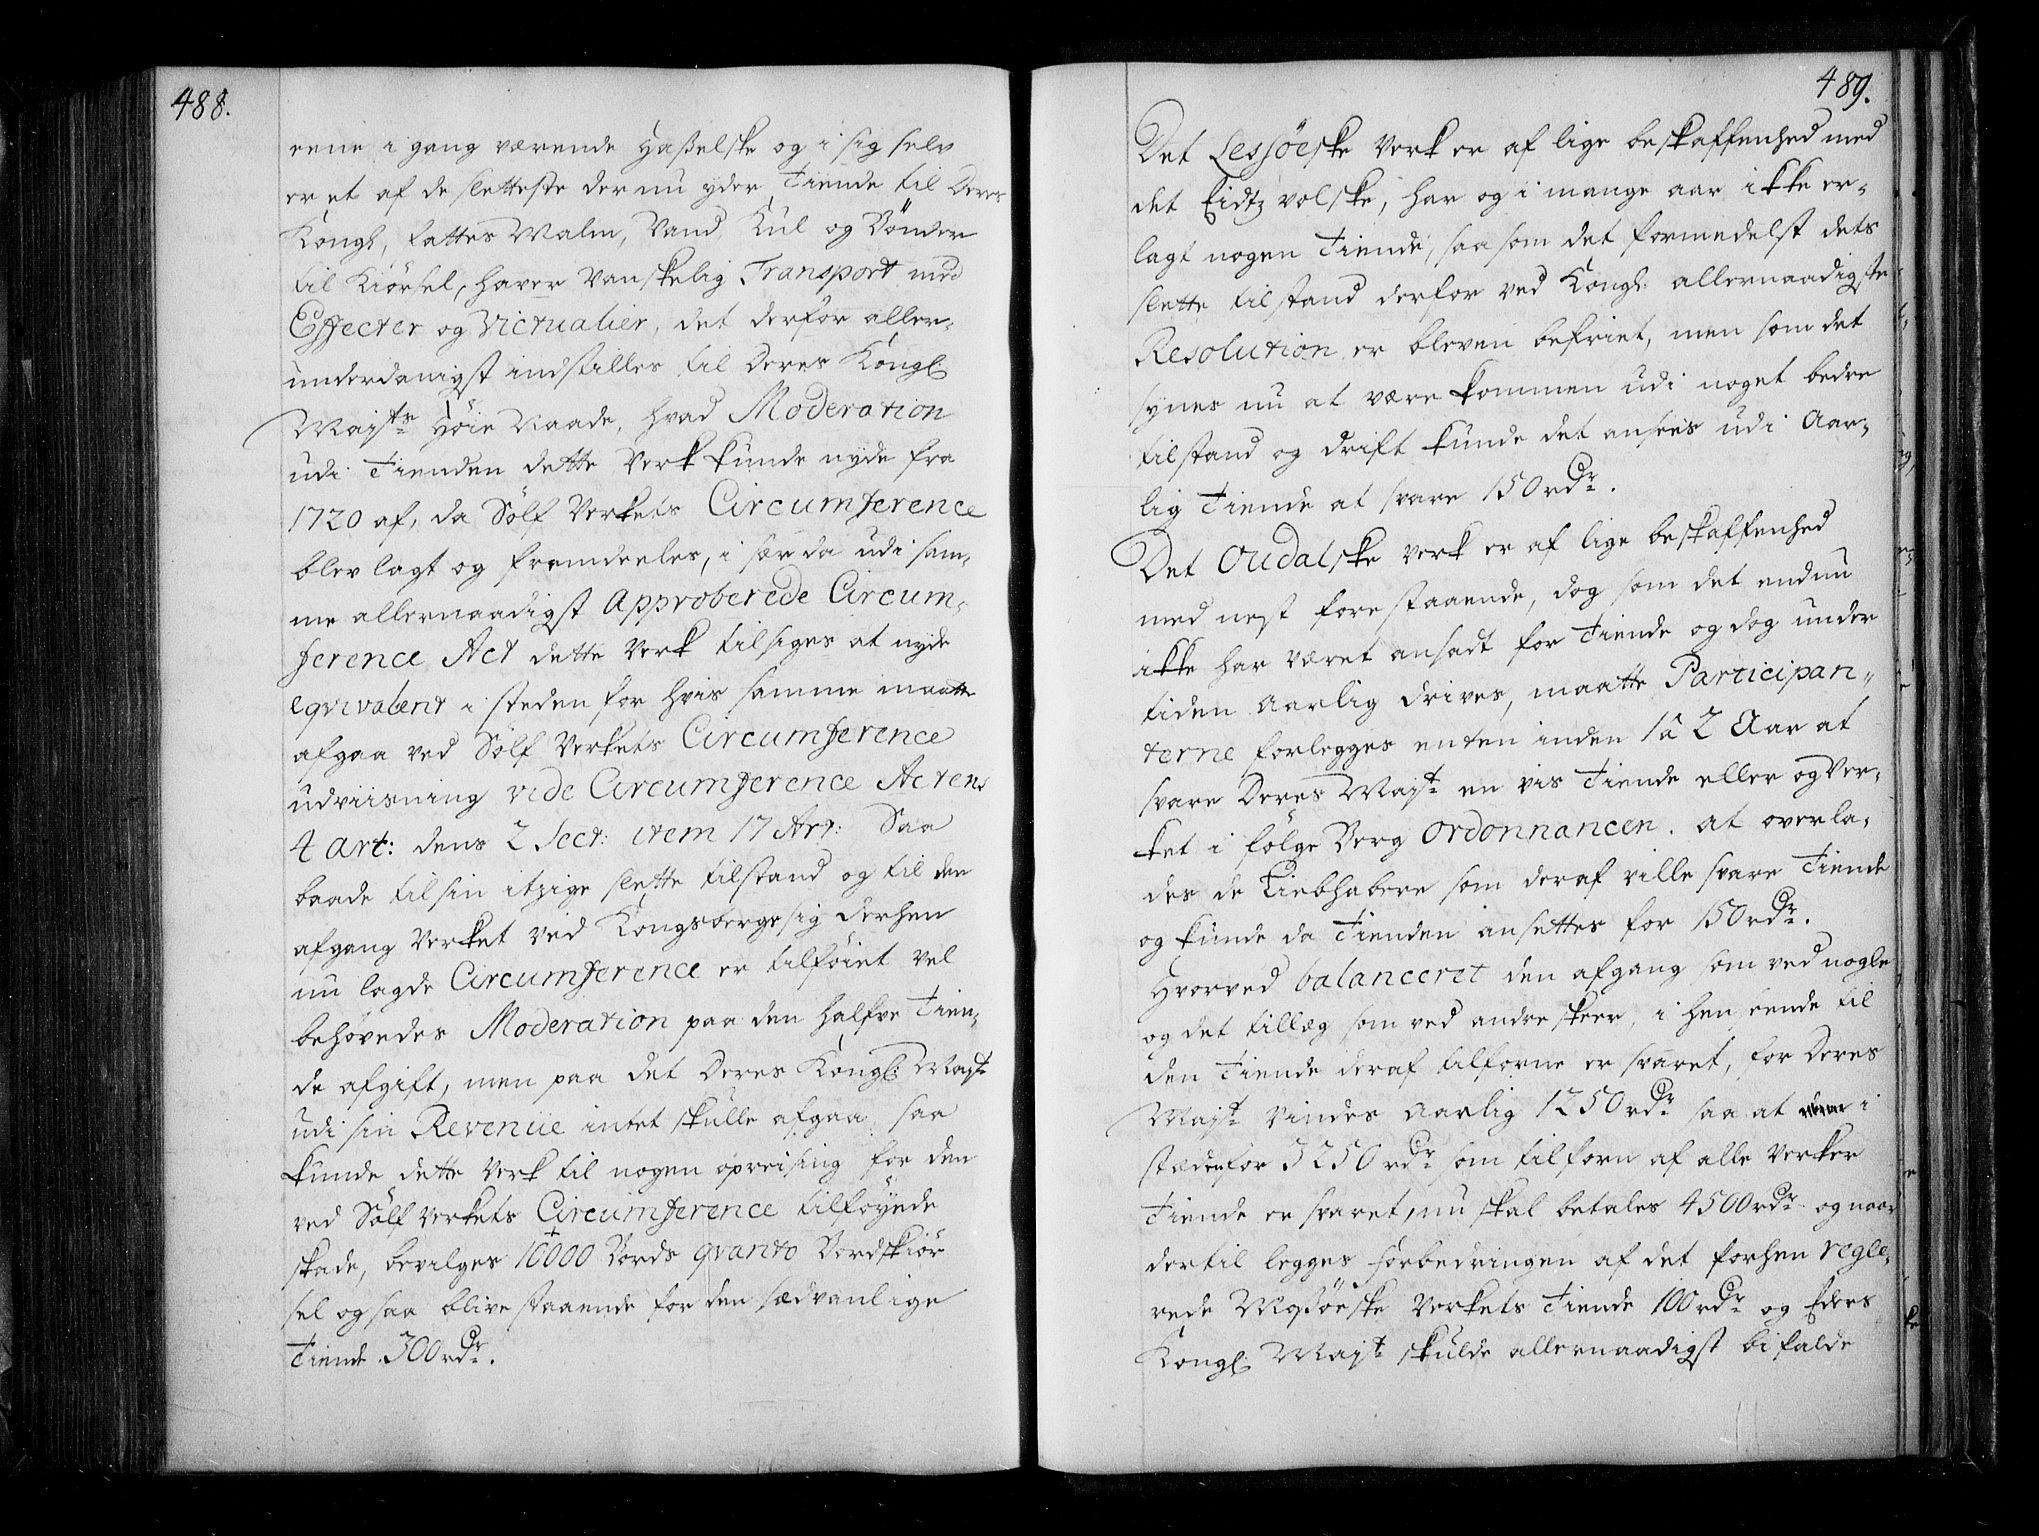 488.
rene i gang værende Hasselske og i sig selv
er et af de sletteste der nu yder Tiende til Deres
Kongl, fattes Malm, Vand Kul og Bönder
til Kiörsel, haver vanskelig Transport med
Effecter og Victualier, det derfor aller-
underdanigst indstilles til Deres Kongl:
Majts Höie Naade, hvad Moderation
udi Tienden dette Verk kunde nyde fra
1720 af, da Sölf Verkets Circumference
blev lagt og fremdeeles, i sær da udi sam-
me allernaadigst Approberede Circum-
ference Act dette Verk tilsiges at nyde
eqvivalent i steden for hvis samme maatte
afgaa ved Sölf Verkets Circumference
udviisning vide Circumference Actens
4 art: dens 2 Sect: item 17 Art: Saa
baade til sin itzige slette tilstand og til den
afgang Verket ved Kongsberge sig derhen
nu lagde Circumference er tilföiet vel
behövedes Moderation paa den halfve Tien-
de afgift, men paa det Deres Kongl: Majt
udi sin Revenüe intet skulle afgaa, saa
kunde dette Verk til nogen opreising for den
ved Sölf Verkets Circumference tilföyede
skade, bevilges 10000 Bords qvanto Bordskiör
sel og saa blive staaende for den sædvanlige
Tiende 300 rdr.
489.
Det Lessöeske Verk er af lige beskaffenhed med
det Eidtzvolske, har og i mange aar ikke er-
lagt nogen Tiende, saa som det formedelst dets
slette tilstand derfor ved Kongl: allernaadigste
Resolution er bleven befriet, men som det
synes nu at være kommen udi noget bedre
tilstand og drift kunde det ansees udi Aar-
lig Tiende at svare 150 rdr.
Det Oudalske Verk er af lige beskaffenhed
med nest forestaaende, dog som det endnu
ikke har været ansadt for Tiende og dog under
tiden Aarlig drives, maatte Participan-
terne forlegges enten inden 1 â 2 Aar at
svare Deres Majt en vis Tiende eller og Ver-
ket i fölge Berg Ordonnancen at overla-
des de Liebhabere som deraf ville svare Tiende
og kunde da Tienden ansettes for 150 rdr.
Hvorved balanceret den afgang som ved nogle
og det tillæg som ved andre skeer, i hen seende til
den Tiende deraf tilforne er svaret, for Deres
Majt vindes Aarlig 1250 rdr saa at i
stæden for 3250 rdr som tilforn af alle Verker
Tiende er svaret, nu skal betales 4500 rdr og naar
dertil legges forbedringen af det forhen regle-
rede Mossöeske Verkets Tiende 100 rdr og Eders
Kongl: Majt skulde allernaadigst bifalde